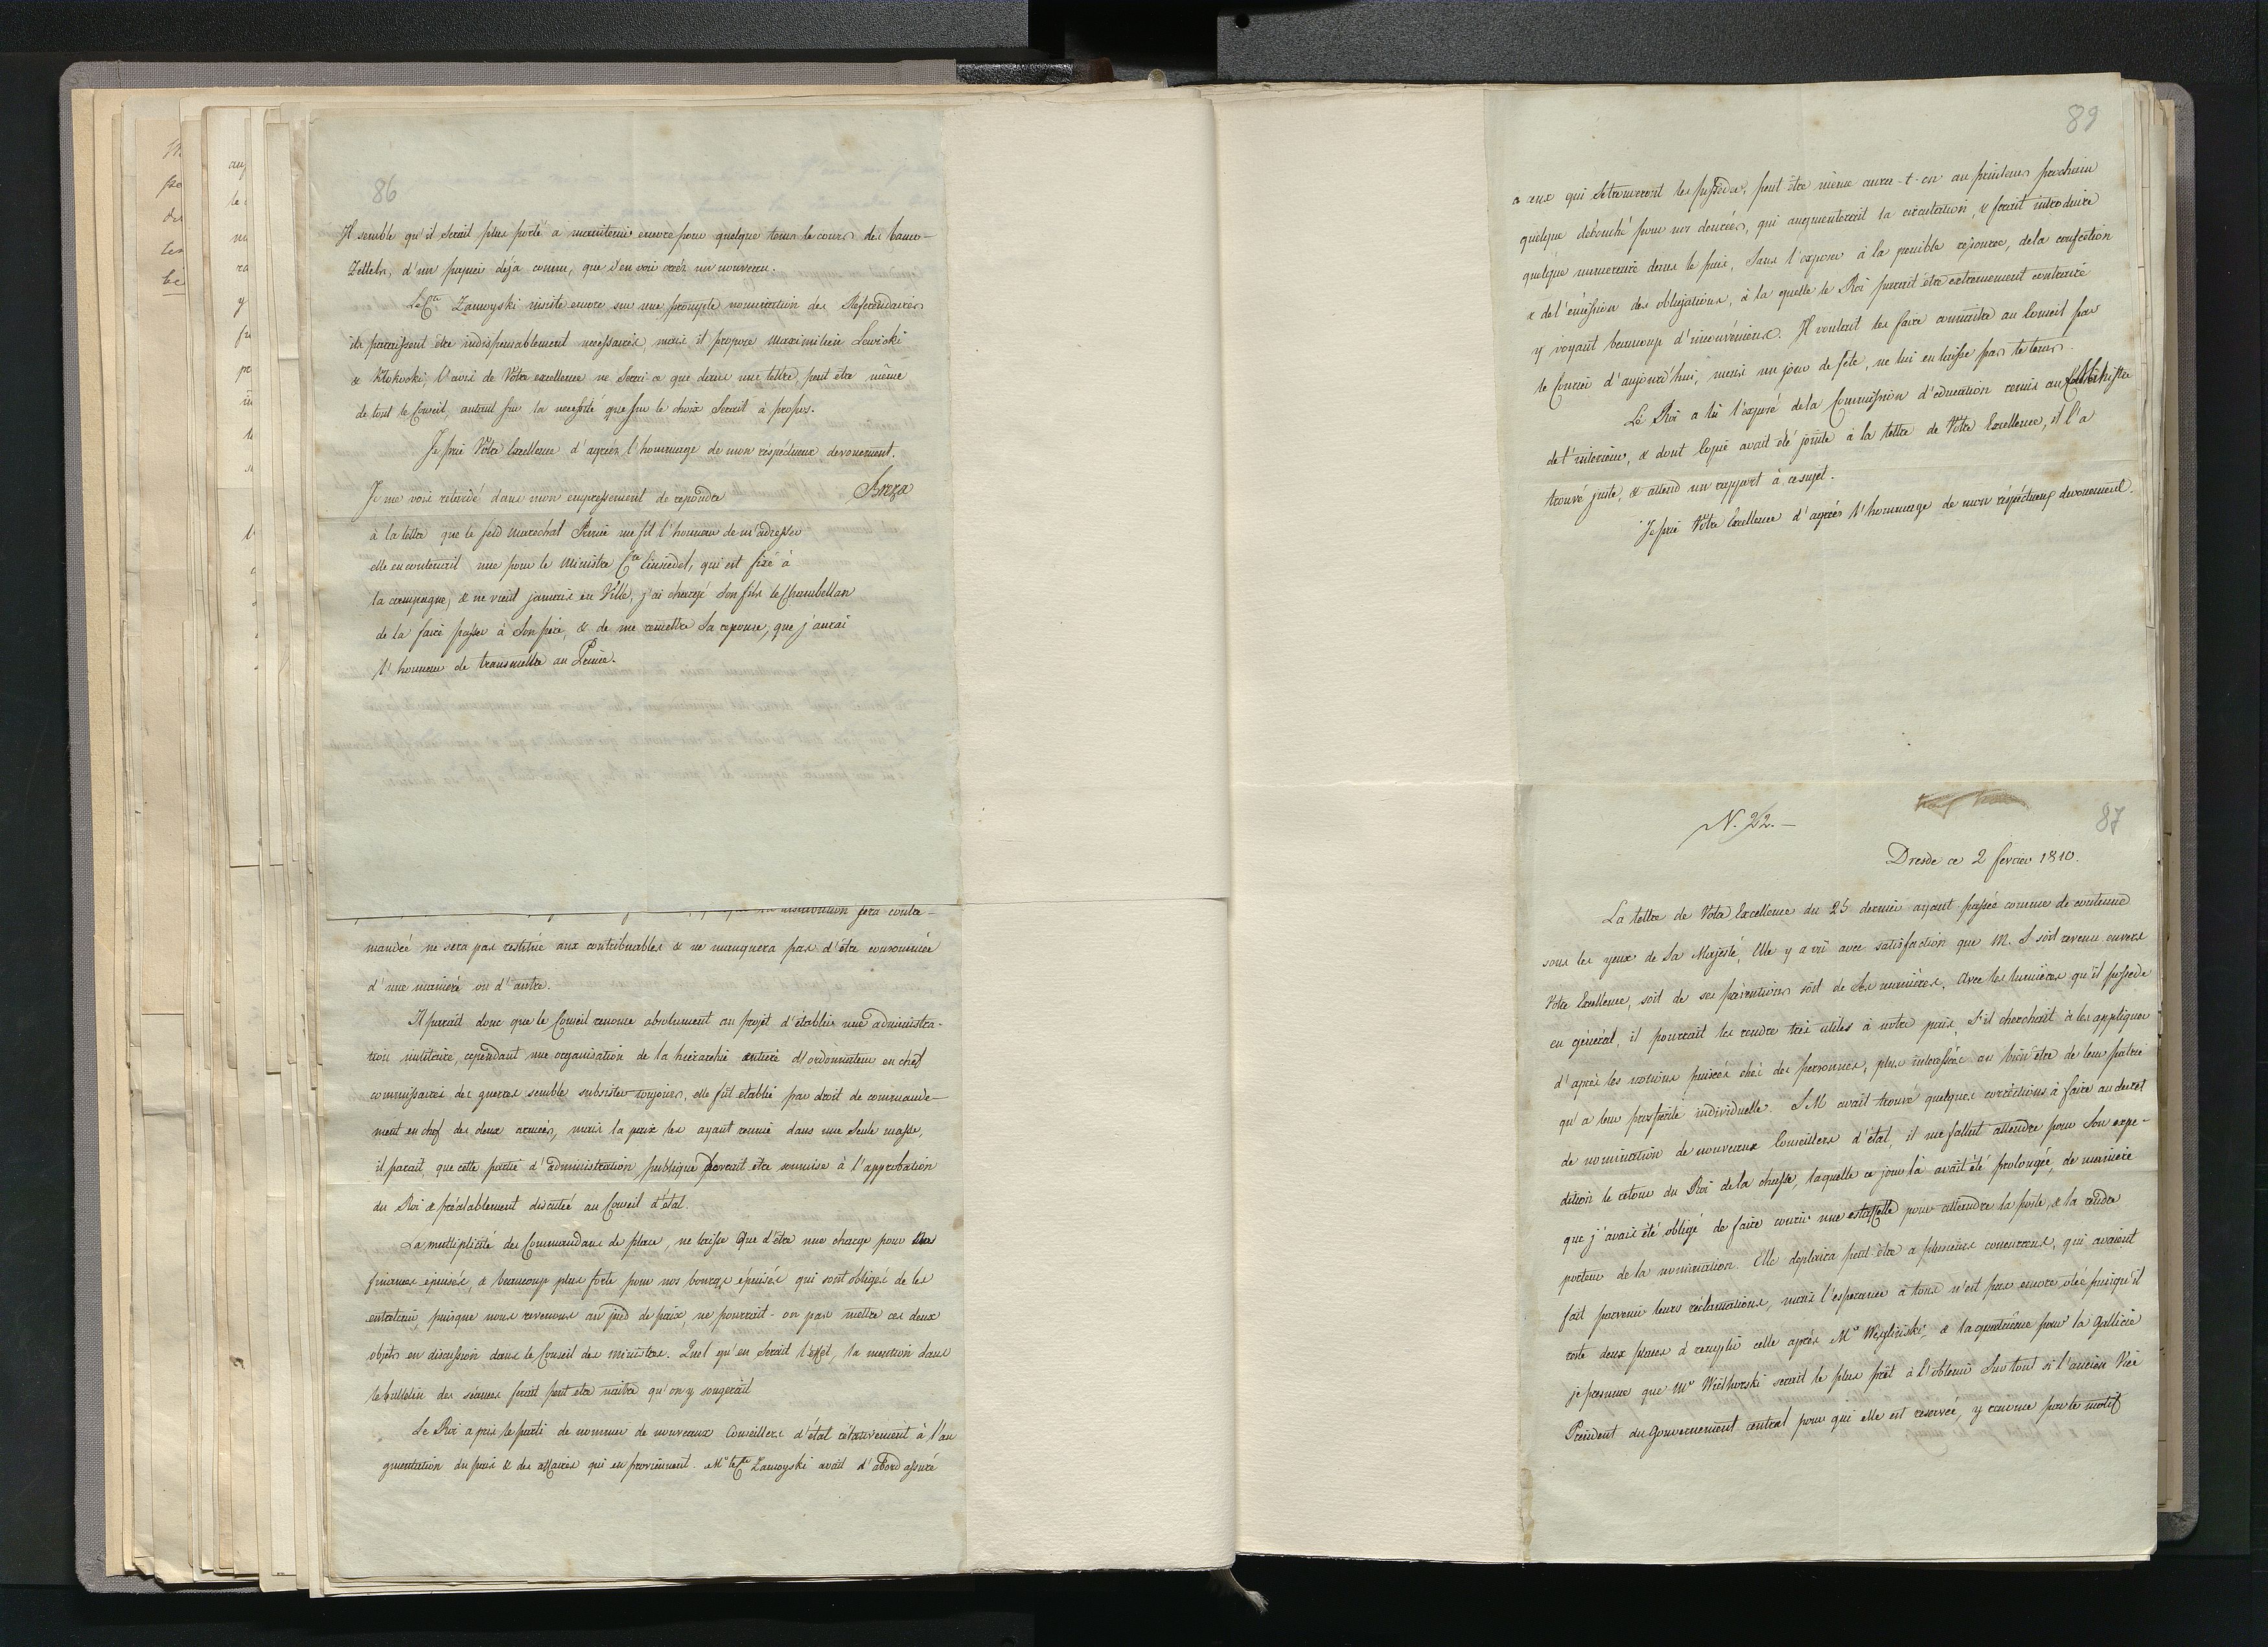 86
Il semble qu'il serait plus porté a maintenir encore pour quelque tems le cours des banco-
Zettels, d'un papier déja connu, que d'en voir créer un nouveau.
Le Cte Zamoyski insiste encore sur une prompte nomination des Referendaires
ils paraissent être indispensablement necessaires, mais il propose Maximilien Lewicki
& l'avis de Votre excellence ne serai-ce que dans une lettre, peut être même
de tout le Conseil, autant sur la necessité que sur le choix serait à propos.
Je prie Votre Excellence d'agréer l'hommage de mon réspéctueux devouement.
Breza
Je me vois retardé dans mon empressement de repondre
à la lettre que le feld Marechal Prince me fit l'honneur de m'adresser
elle en contenait une pour le Ministre Cte Einsiedel, qui est fixé à
la campagne, & ne vient jamais en Ville, j'ai chargé son fils le Chambellan
de la faire passer à Son père, & de me remettre Sa reponse, que j'aurai
l'honneur de transmettre au Prince.
sera contre-
mandée ne sera pas restituée aux contribuables & ne manquera pas d'être consommée
d'une maniere ou d'autre.
Il parait donc que le Conseil renonce absolument au projet d'établir une administra-
tion militaire, cependant une organisation de la hierarchie entiere d'ordonnateur en chef
commissaires des guerres semble subsister toujours, elle fût etablie par droit de commande-
ment en chef des deux armées, mais la paix les ayant reunie dans une seule masse,
il parait, que cette partie d'administration publique devrait etre soumise à l'approbation
du Roi & préalablement discutée au Conseil d'état.
La multiplicité des Commandans de place, ne laisse que d'être une charge pour les
finances épuisées, & beaucoup plus forte pour nos bourgs épuisés qui sont obligés de les
entretenir, puisque nous revenons au pied de paix, ne pourrait-on pas mettre ces deux
objets en discussion dans le Conseil des ministres. Quel qu'en serait l'effet, la mention dans
le bulletin des séances ferait peut etre naitre qu'on y songerait
Le Roi a pris le parti de nommer de nouveaux Conseillers d'état relativement à l'au
gmentation du pais & des affaires qui en proviennent. Mr le Cte Zamoyski avait d'abord assuré
89
a ceux qui se trouveront les posseder, peut être même aura-t-on au printems prochain
quelque débouché pour nos denrées, qui augmenterait la circulation, & ferait introduire
quelque numeraire dans le pais, sans l'exposer à la penible resource, de la confection
& de l'emission des obligations, à la quelle le Roi parait être extremement contraire
y voyant beaucoup d'inconvéniens. Il voulait les faire connaitre au Conseil par
le Courier d'aujourd'hui, mais un jour de fête, ne lui en laisse pas le tems.
Le Roi a lû l'exposé de la Commission d'education remis au Ministre
de l'interieur, & dont copie avait été jointe à la lettre de Votre Excellence, il l'a
trouvé juste, & attend un rapport à ce sujet.
Je prie Votre Excellence d'agréer l'hommage de mon réspéctueux devouement.
N. 22.
87
Dresde ce 2 fevrier 1810.
La lettre de Votre Excellence du 25 dernier ayant passée comme de coutume
sous les yeux de Sa Majesté, Elle y a vû avec satisfaction que M. S soit revenu envers
Votre Excellence, soit de ses préventions soit de ses manières. Avec les lumières qu'il possede
en général, il pourrait les rendre très utiles à notre pais, s'il cherchait à les appliquer
d'après les notions puisées chés des personnes, plus interessées au bien être de leur patrie
qu'a leur prosperité individuelle. S M avait trouvé quelques corrections à faire au decret
de nomination de nouveaux Conseillers d'état, il me fallut attendre pour son expe-
dition le retour du Roi de la chasse, laquelle ce jour là avait été prolongée, de maniere
que j'avais été obligé de faire courir une estaffette pour atteindre la poste, & la rendre
porteur de la nomination. Elle deplaira peut être a plusieurs concurrens, qui avaient
fait parvenir leurs réclamations, mais l'esperance à tous n'est pas encore otée puisqu'il
reste deux places à remplir celle après Mr Węgliński, & la quatrième pour la Gallicie
je presume que Mr Wielhorski serait le plus prêt à l'obtenir sur tout si l'ancien Vice
President du Gouvernement central pour qui elle est reservée, y renonce par le motif